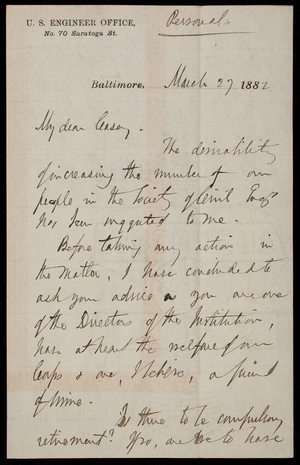 U. S. ENGINEER OFFICE,
No. 70 Saratoga St.
Personal.
Baltimore, March 27 1882
My dear Casey.
The desirability
of increasing the number of our
people in the Society of Civil Eng.rs
has been suggested to me.
Before taking any action in
the matter, I have concluded to
ask your advice as you are one
of the Directors of the Institution,
have at heart the welfare of our
Corps & are, I believe, a friend
of mine.
Is there to be compulsory
retirement? If so, are we to have